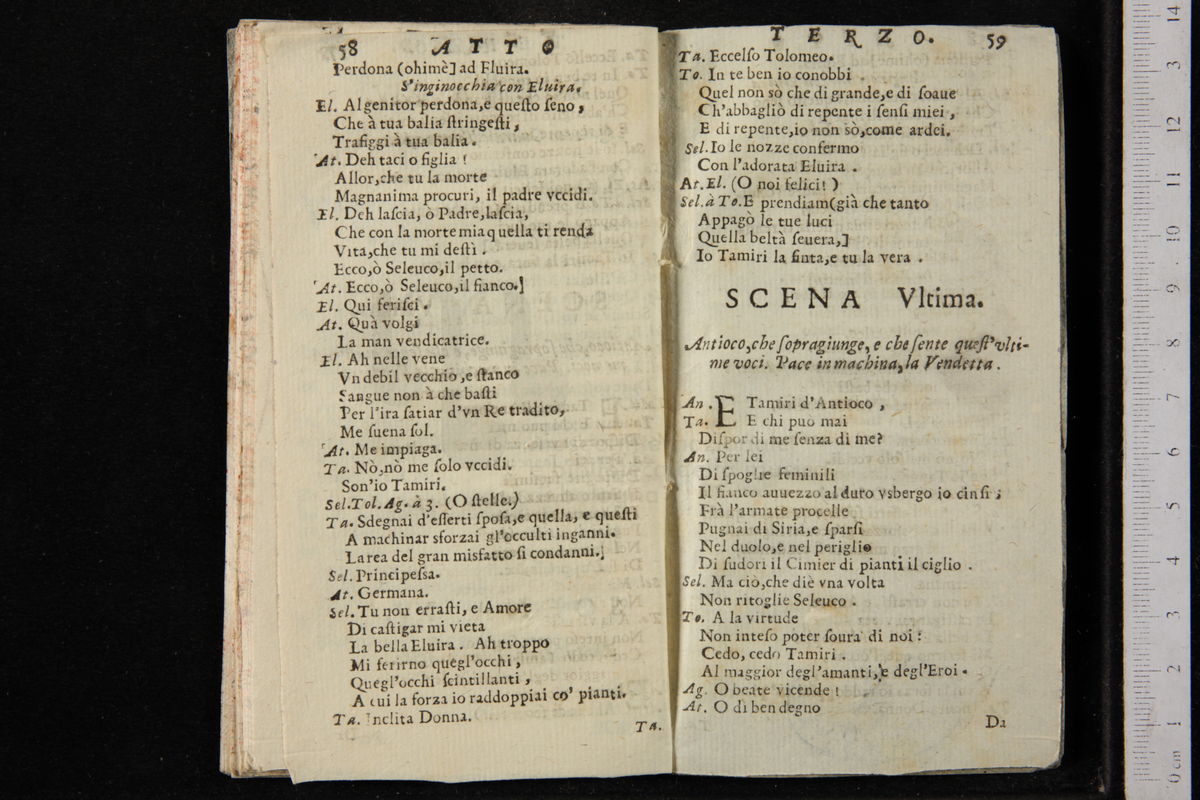 58 ATTO
Perdona (ohimè] ad Fluira.
S'inginocchia con Eluira.
El. Al genitor perdona,e questo ſeno,
Che à tua balia ſtringeſti,
Trafiggi à tua balia.
At. Deh taci o figlia!
Allor,che tu la morte
Magnanima procuri, il padre vccidi.
El. Deh laſcia, ò Padre,laſcia,
Che con la morte mia quella ti renda
Vita,che tu mi deſti.
Ecco,ò Seleuco,il petto.
At. Ecco,ò Seleuco,il fianco.]
El. Qui feriſci.
At. Quà volgi
La man vendicatrice.
El. Ah nelle vene
Vn debil vecchio,e ſtanco
Sangue non à che baſti
Per l'ira ſatiar d'vn Re tradito,
Me ſuena ſol.
At. Me impiaga.
Ta. Nò,nò me ſolo vccidi.
Son'io Tamiri.
Sel.Tol. Ag. à 3. (O ſtelle.)
Ta. Sdegnai d'eſſerti ſpoſa,e quella, e queſti
A machinar sforzai gl'occulti inganni.
La rea del gran misfatto ſi condanni.
Sel. Principeſsa.
At. Germana.
Sel. Tu non erraſti, e Amore
Di caſtigar mi vieta
La bella Eluira. Ah troppo
Mi ferirno quegl'occhi,
Quegl'occhi ſcintillanti,
A cui la forza io raddoppiai co' pianti.
Ta. Inclita Donna.
Ta.
TERZO. 59
Ta. Eccelſo Tolomeo.
To. In te ben io conobbi
Quel non sò che di grande,e di ſoaue
Ch'abbagliò di repente i ſenſi miei,
E di repente,io non sò,come ardei.
Sel. Io le nozze confermo
Con l'adorata Eluira.
At. El. (O noi felici!)
Sel. à To. E prendiam(già che tanto
Appagò le tue luci
Quella beltà ſeuera,]
Io Tamiri la finta,e tu la vera.
SCENA Vltima.
Antioco,che ſopragiunge, e che ſente queſt'vlti-
me voci. Pace in machina,la Vendetta.
An. E Tamiri d'Antioco,
Ta. E chi puo mai
Diſpor di me ſenza di me?
An. Per lei
Di ſpoglie feminili
Il fianco auuezzo al duro vsbergo io cinſi;
Frà l'armate procelle
Pugnai di Siria,e ſparſi
Nel duolo,e nel periglio
Di ſudori il Cimier di pianti il ciglio.
Sel. Ma ciò,che diè vna volta
Non ritoglie Seleuco.
To. A la virtude
Non inteſo poter ſoura di noi!
Cedo, cedo Tamiri.
Al maggior degl'amanti,e degl'Eroi.
Ag. O beate vicende!
At. O dì ben degno
Da
0 cm 1 2 3 4 5 6 7 8 9 10 11 12 13 14